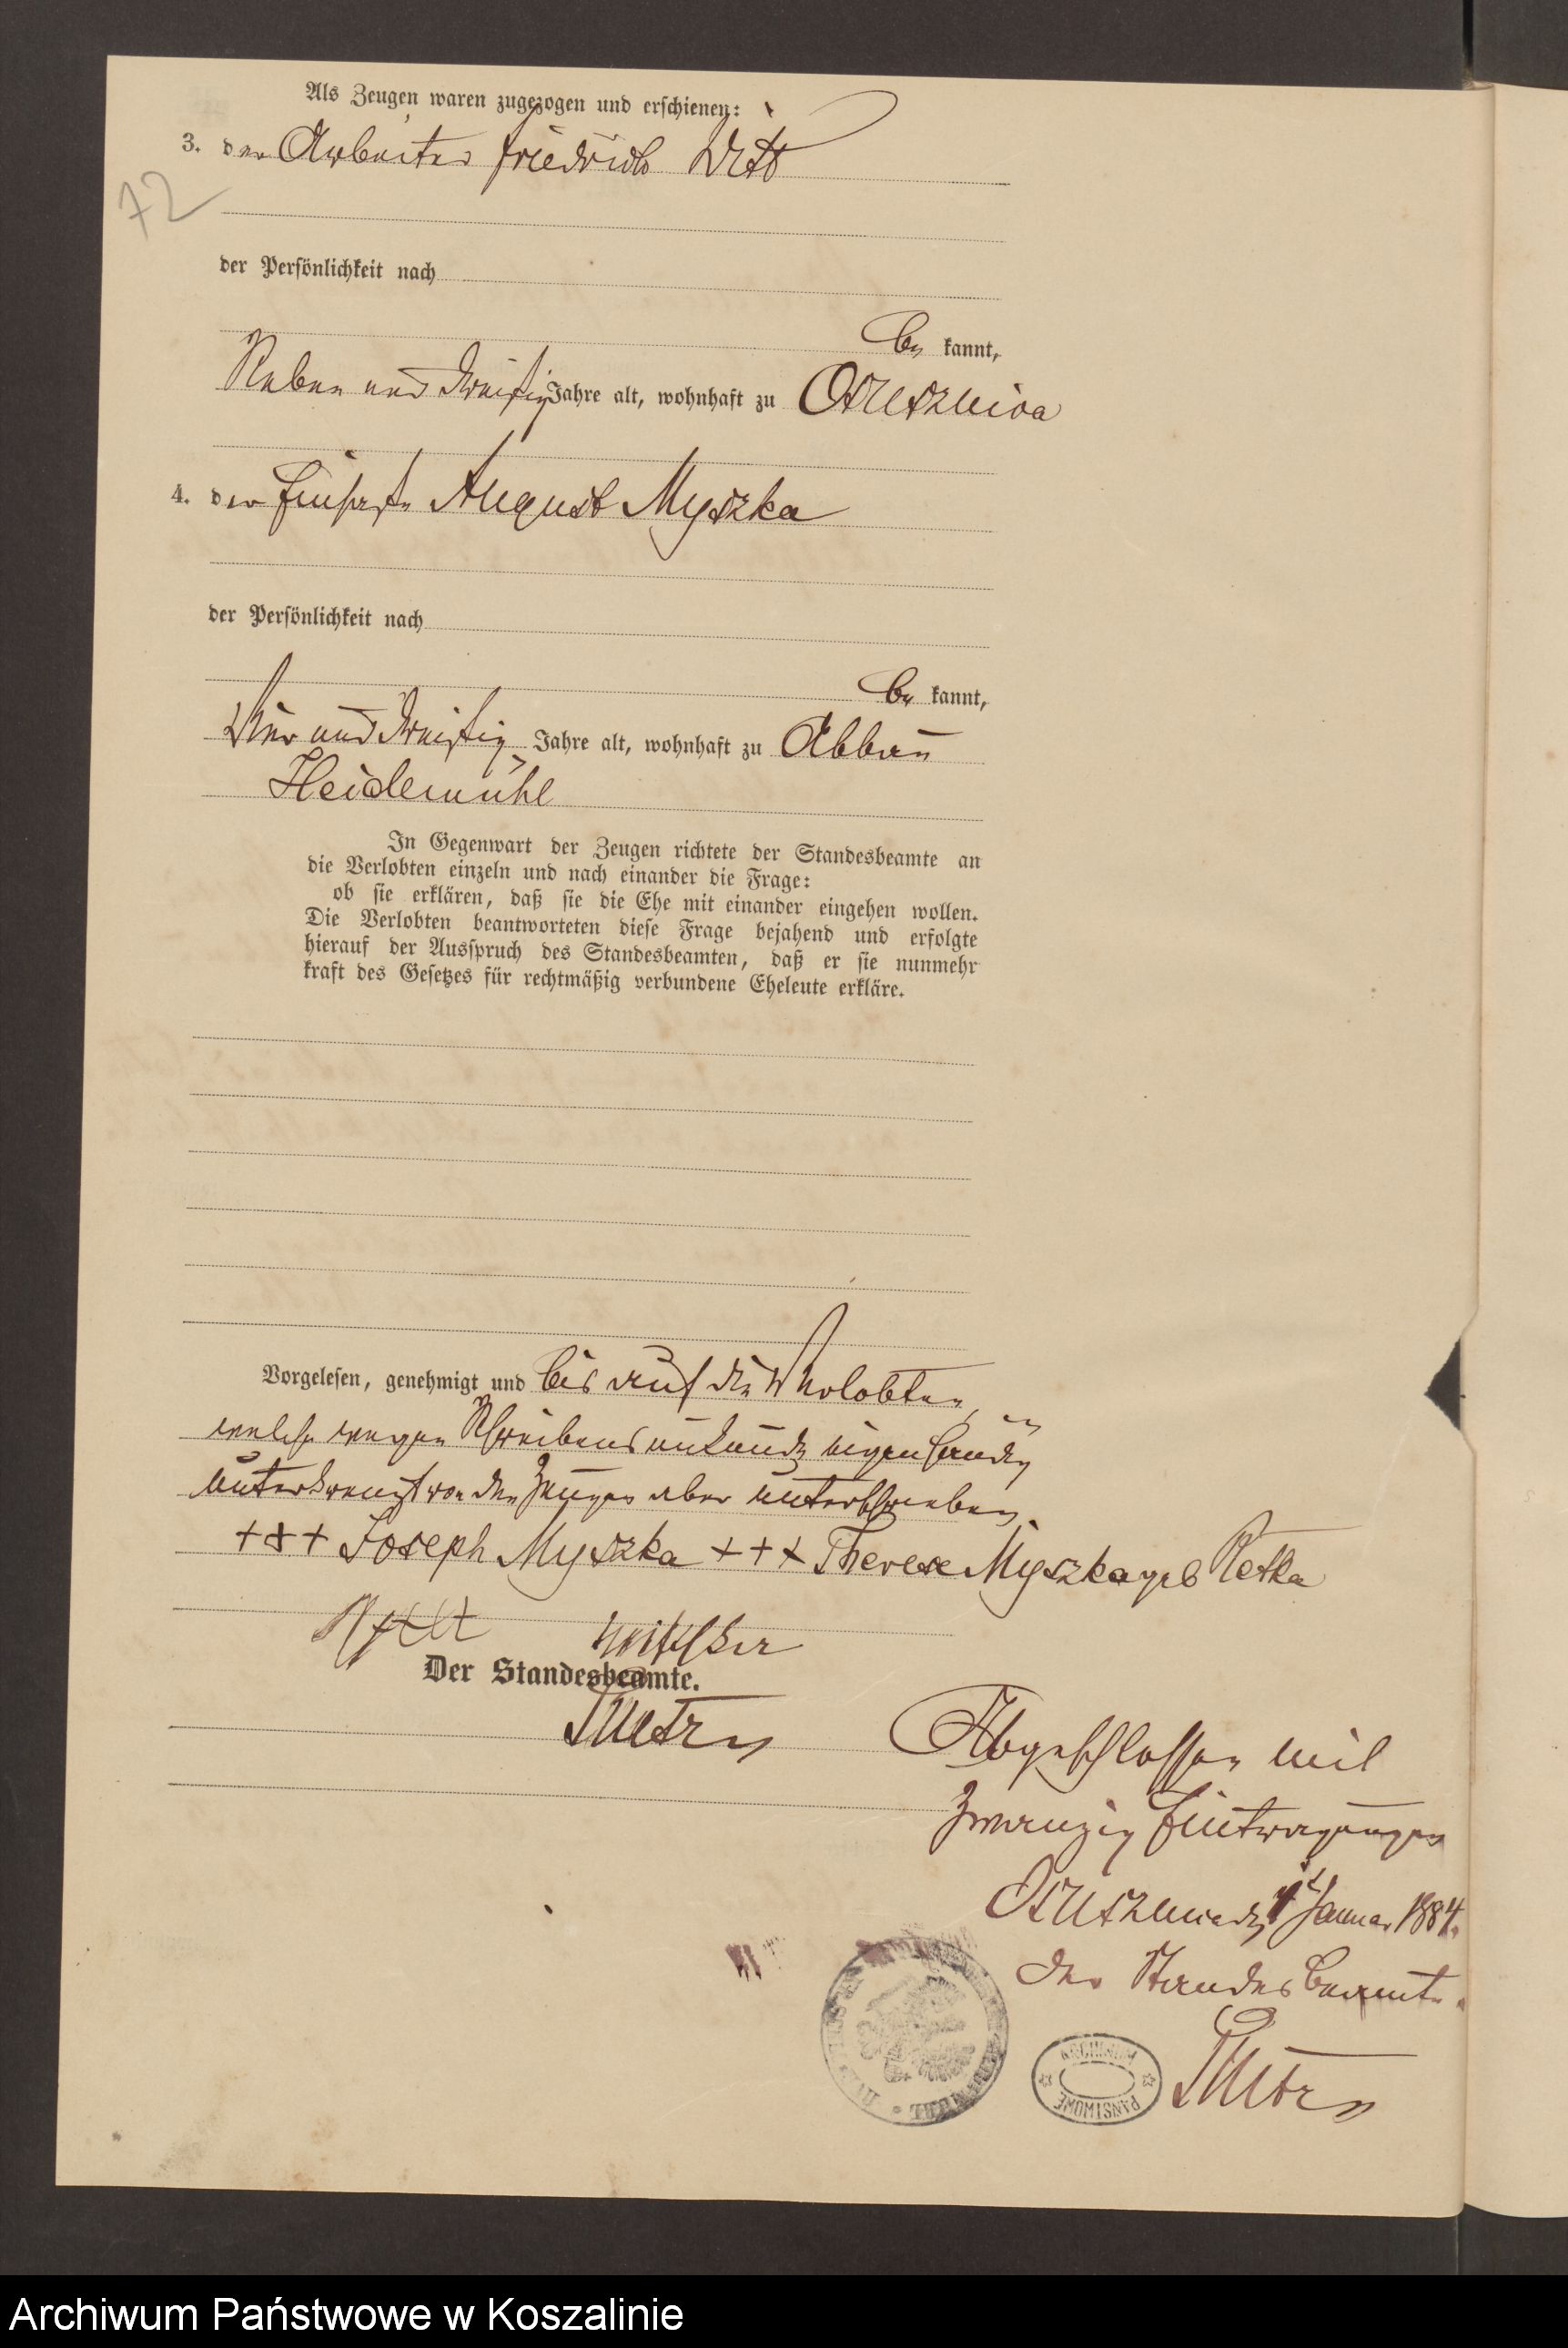 Als Zeugen waren zugezogen und erschienen:
3. der Arbeiter Friedrich
72
der Persönlichkeit nach
be kannt,
Sieben und dreißig Jahre alt, wohnhaft zu
4. der August Myszka
der Persönlichkeit nach
be kannt,
Vier und dreißig Jahre alt, wohnhaft zu Abbau
Heidemühl
In Gegenwart der Zeugen richtete der Standesbeamte an
die Verlobten einzeln und nach einander die Frage:
ob sie erklären, daß sie die Ehe mit einander eingehen wollen.
Die Verlobten beantworteten diese Frage bejahend und erfolgte
hierauf der Ausspruch des Standesbeamten, daß er sie nunmehr
kraft des Gesetzes für rechtmäßig verbundene Eheleute erkläre.
Vorgelesen, genehmigt und bis auf die Verlobten,
welche wegen Schreibensunkunde eigenhändig
unterkreuzt von den Zeugen aber unterschrieben.
+++ Joseph Myszka +++ Therese Myszka geb
Der Standesbeamte.
Abgeschlossen mit
zwanzig Eintragungen
Januar 1884.
Der Standesbeamte.
ARCHIWUM
PAŃSTWOWE
Archiwum Państwowe w Koszalinie